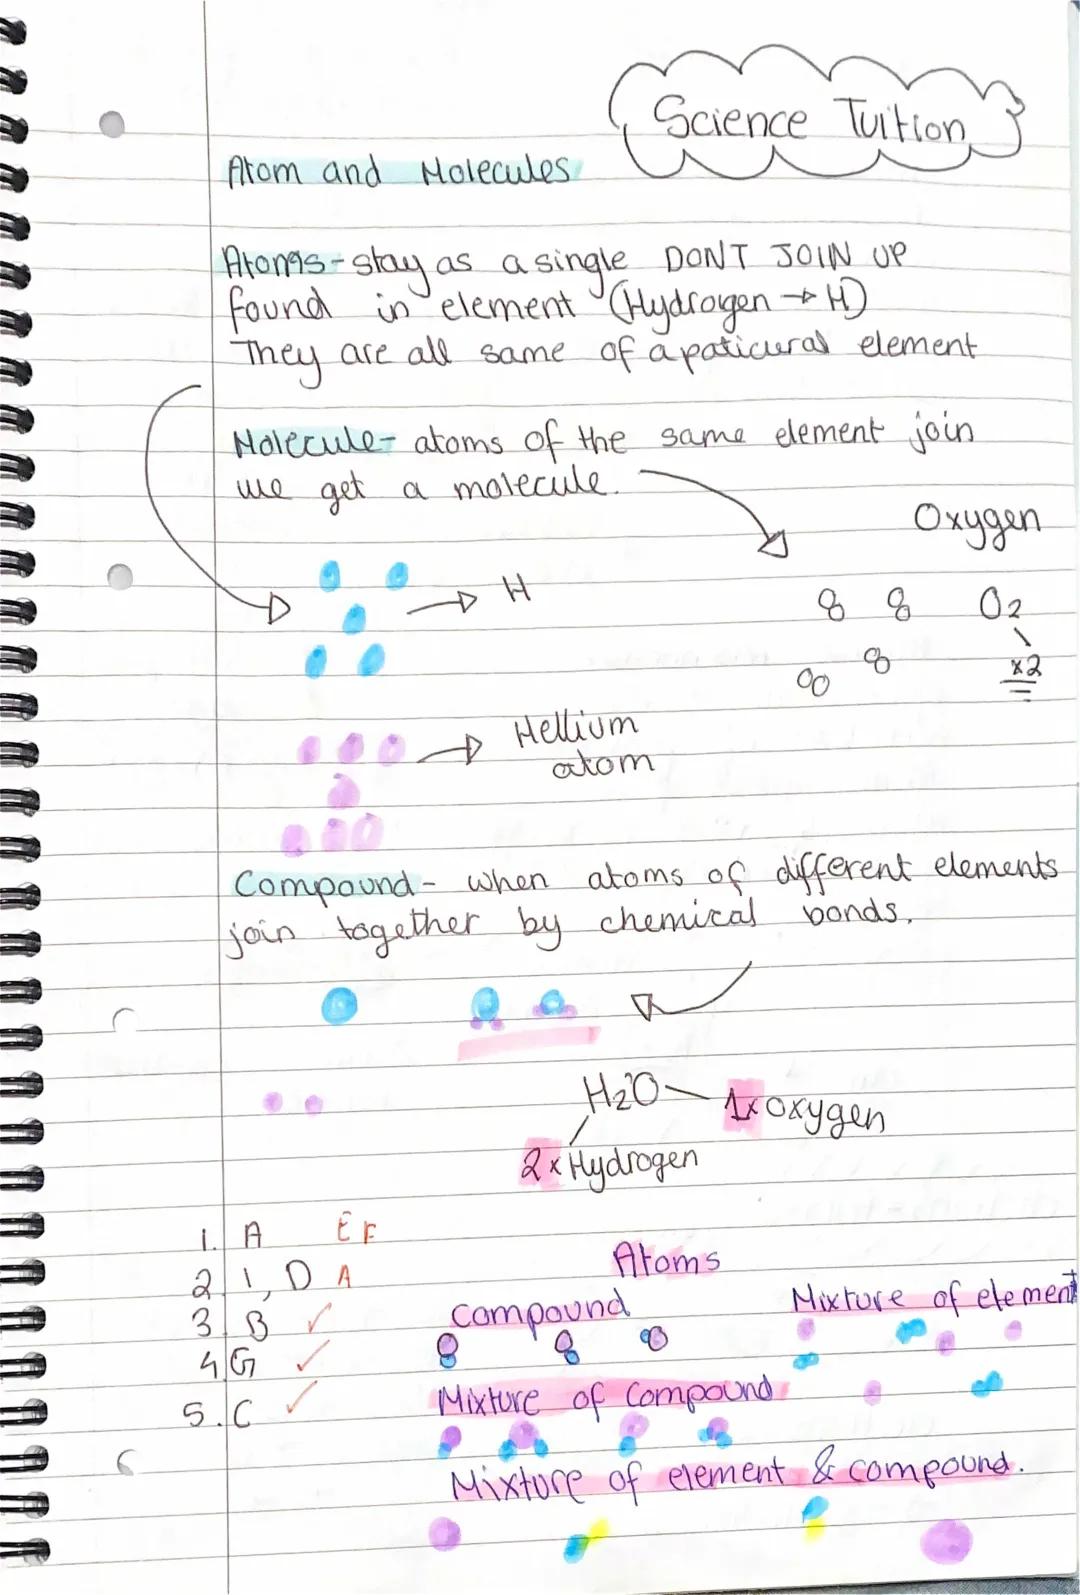 Science Tuition
Atom and Molecules
Atoms - stay as a single DONT JOIN UP
found in element (Hydrogen → H)
They are all same of a paticural element
Molecule - atoms of the same element join
we get a molecule.
Oxygen
→ H
8 8 O2
8 8 x2
→ Hellium
atom
Compound - when atoms of different elements
join together by chemical bonds.
H2O
1x oxygen
2 x Hydrogen
1. A E F
2 1, D A
3. B ✓
4 G ✓
5. C ✓
Atoms
compound
Mixture of element
Mixture of compound
Mixture of element & compound.